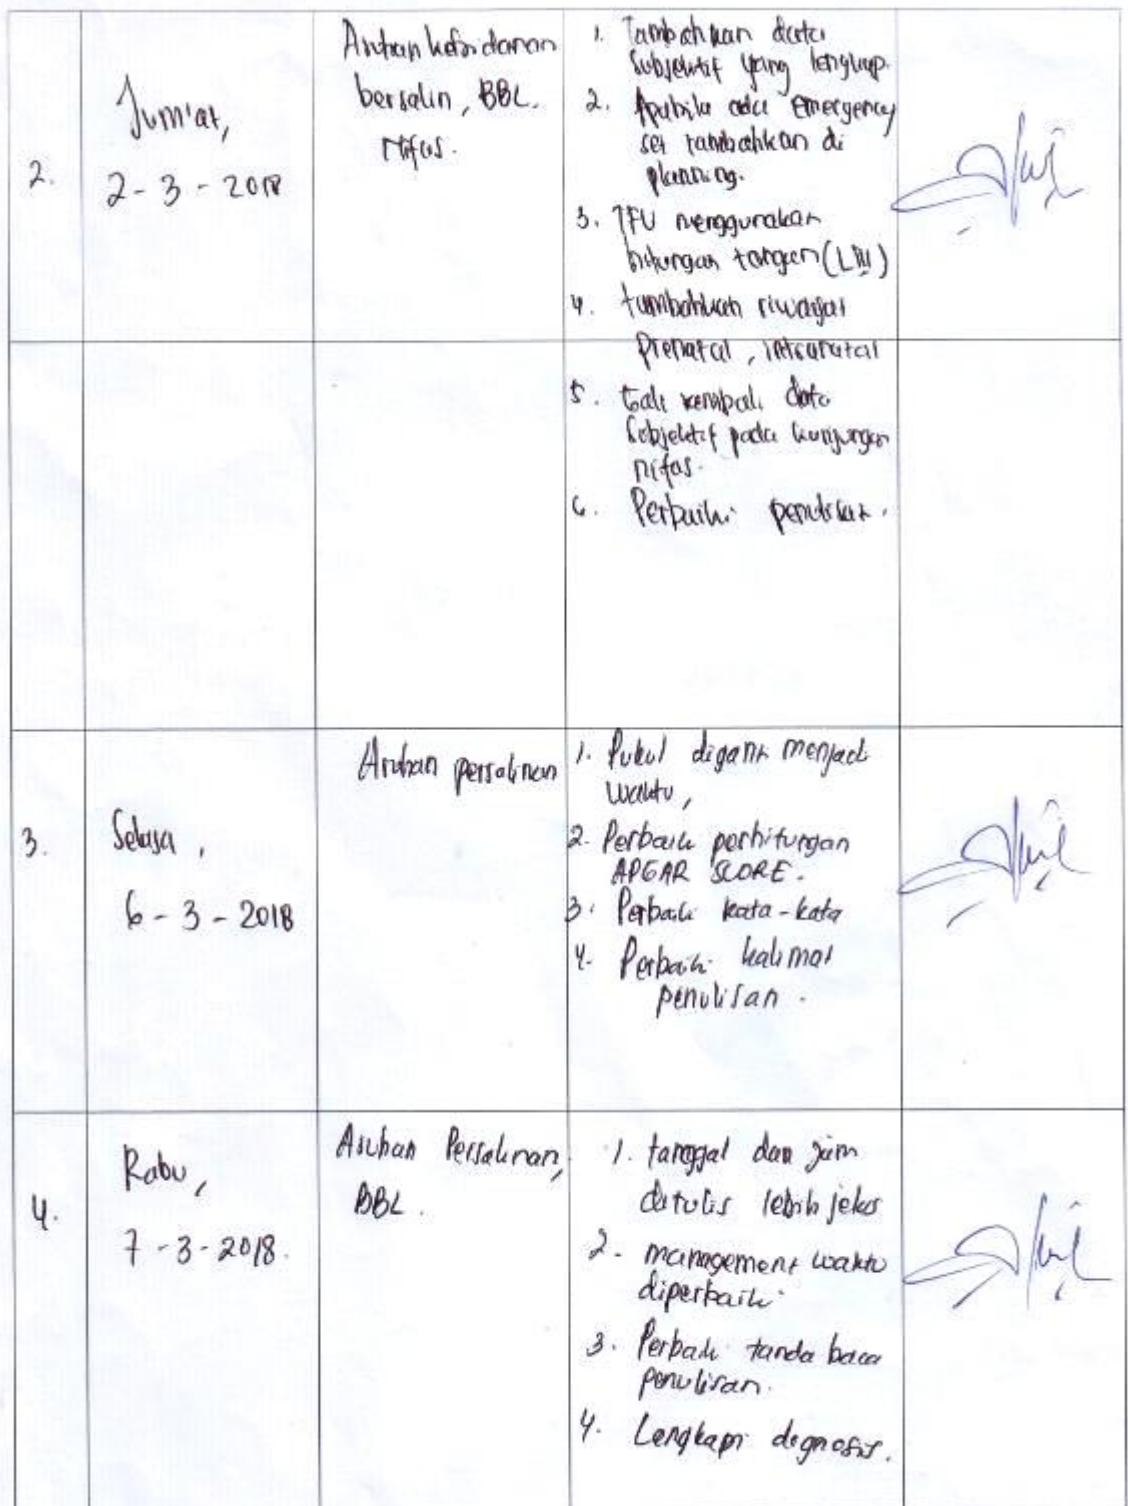 2.
Jum'at,
2-3-2018
Asuhan kebidanan
bersalin, BBL.
nifas.
1. Tambahkan data
Subjektif yang lengkap.
2. Apabila ada emergency
set tambahkan di
planning.
3. TFU menggunakan
hitungan tangan
4. tambahkan riwayat
prenatal, intranatal
5. Gali kembali data
Subjektif pada kunjungan
nifas.
6. Perbaiki penulisan.
3.
Selasa,
6-3-2018
Asuhan persalinan
1. Pukul diganti menjadi
waktu,
2. Perbaiki perhitungan
APGAR SCORE.
3. Perbaiki kata-kata
4. Perbaiki kalimat
penulisan.
4.
Rabu,
7-3-2018.
Asuhan Persalinan,
BBL.
1. tanggal dan jam
ditulis lebih jelas
2. management waktu
diperbaiki
3. Perbaiki tanda baca
penulisan.
4. Lengkapi dignosis.